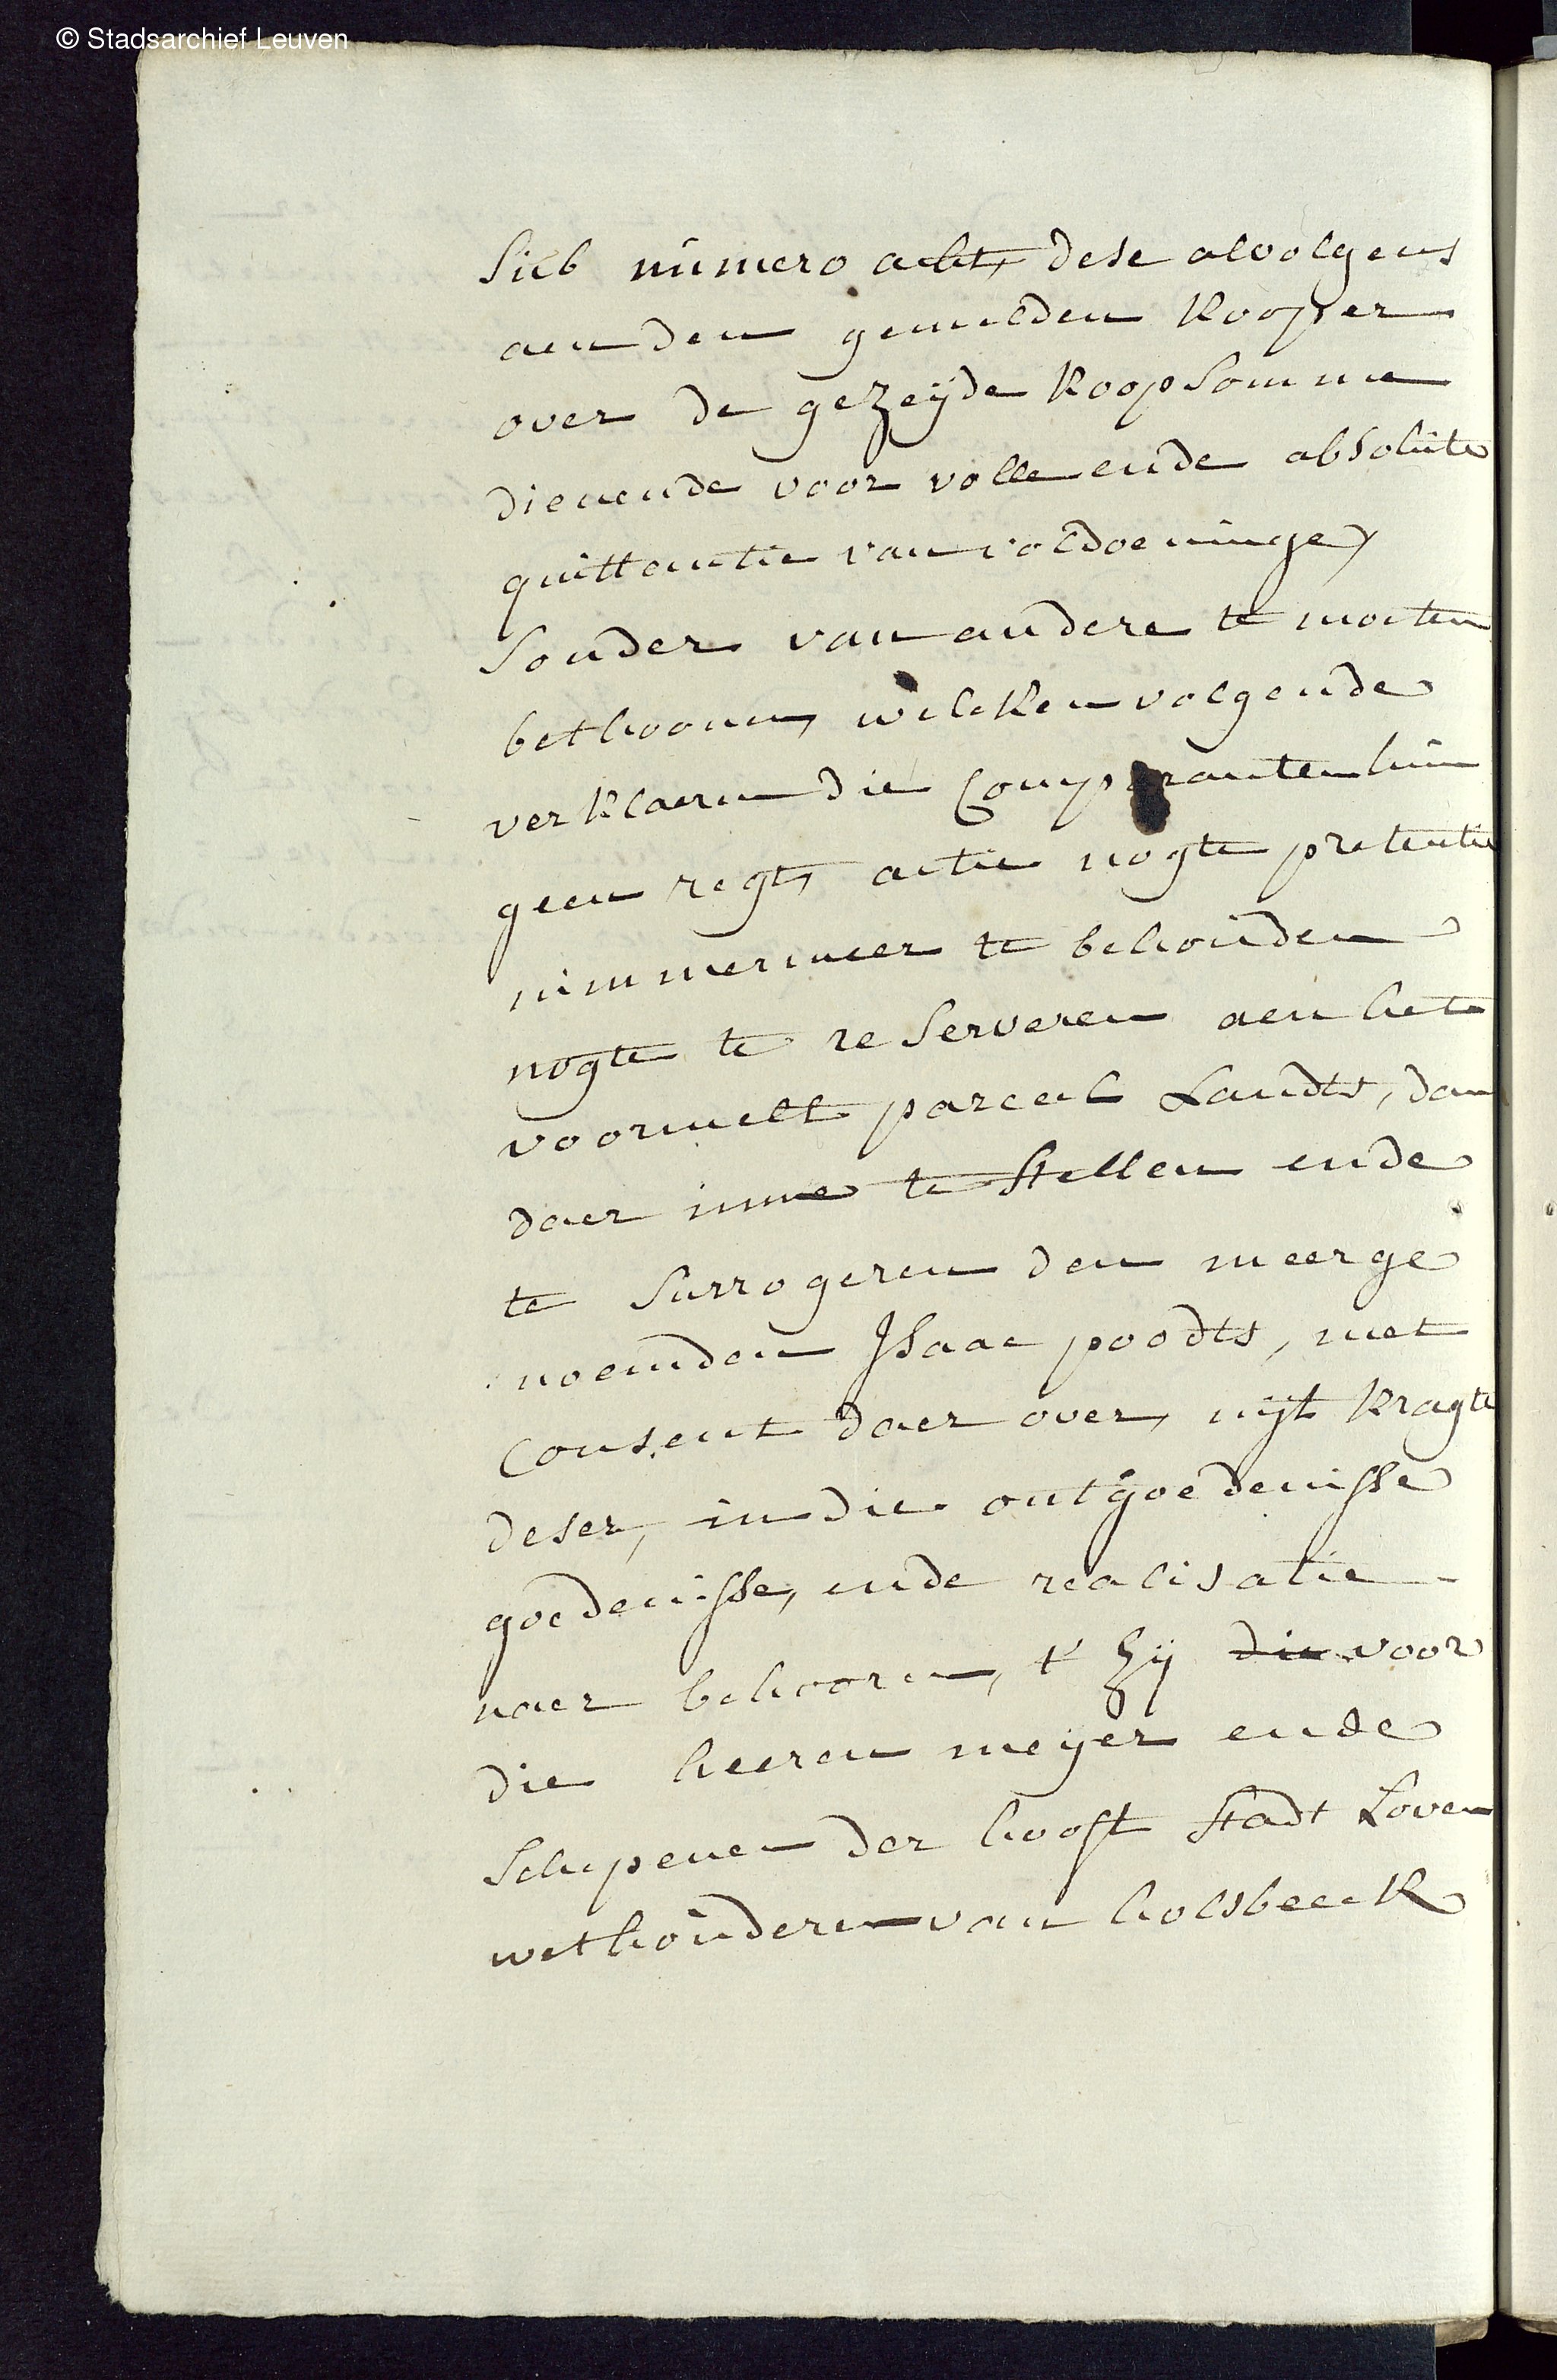 © Stadsarchief Leuven
sub numero acht, dese alvolgens
aen den gemelden kooper
over de gezeijde koopsomme
dienende voor volle ende absolute
quittantie van voldoeninge,
sonder van andere te moeten
bethoonen, welcken volgende
verklaeren die Comparanten hun
geen regt, actie nogte pretentie
nimmermeer te behouden
nogte te reserveren aen het
voormelt parceel Landts, dan
daer inne te stellen ende
te surrogeren den meerge
noemden Isaac poodts, met
Consent daer over, uijt kragte
deser, in die ontgoedenisse
goedenisse, ende realisatie
naer behooren, t' zij die voor
die heeren meyer ende
Schepenen der hooft stadt Loven
wethouderen van holsbeeck